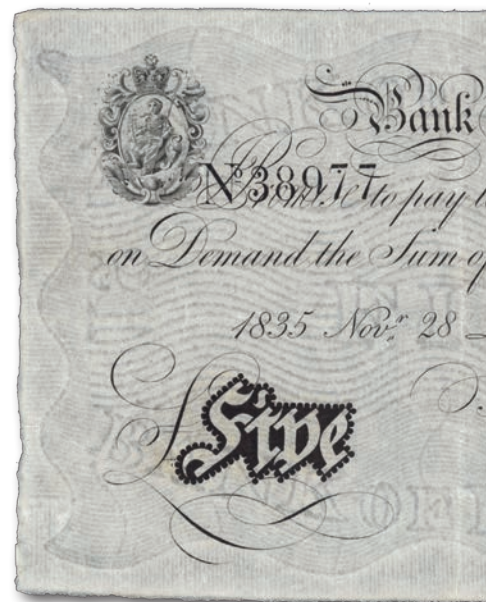 Bank
No 38977
Promise to pay t
on Demand the Sum of
1835 Novr. 28
£ Five